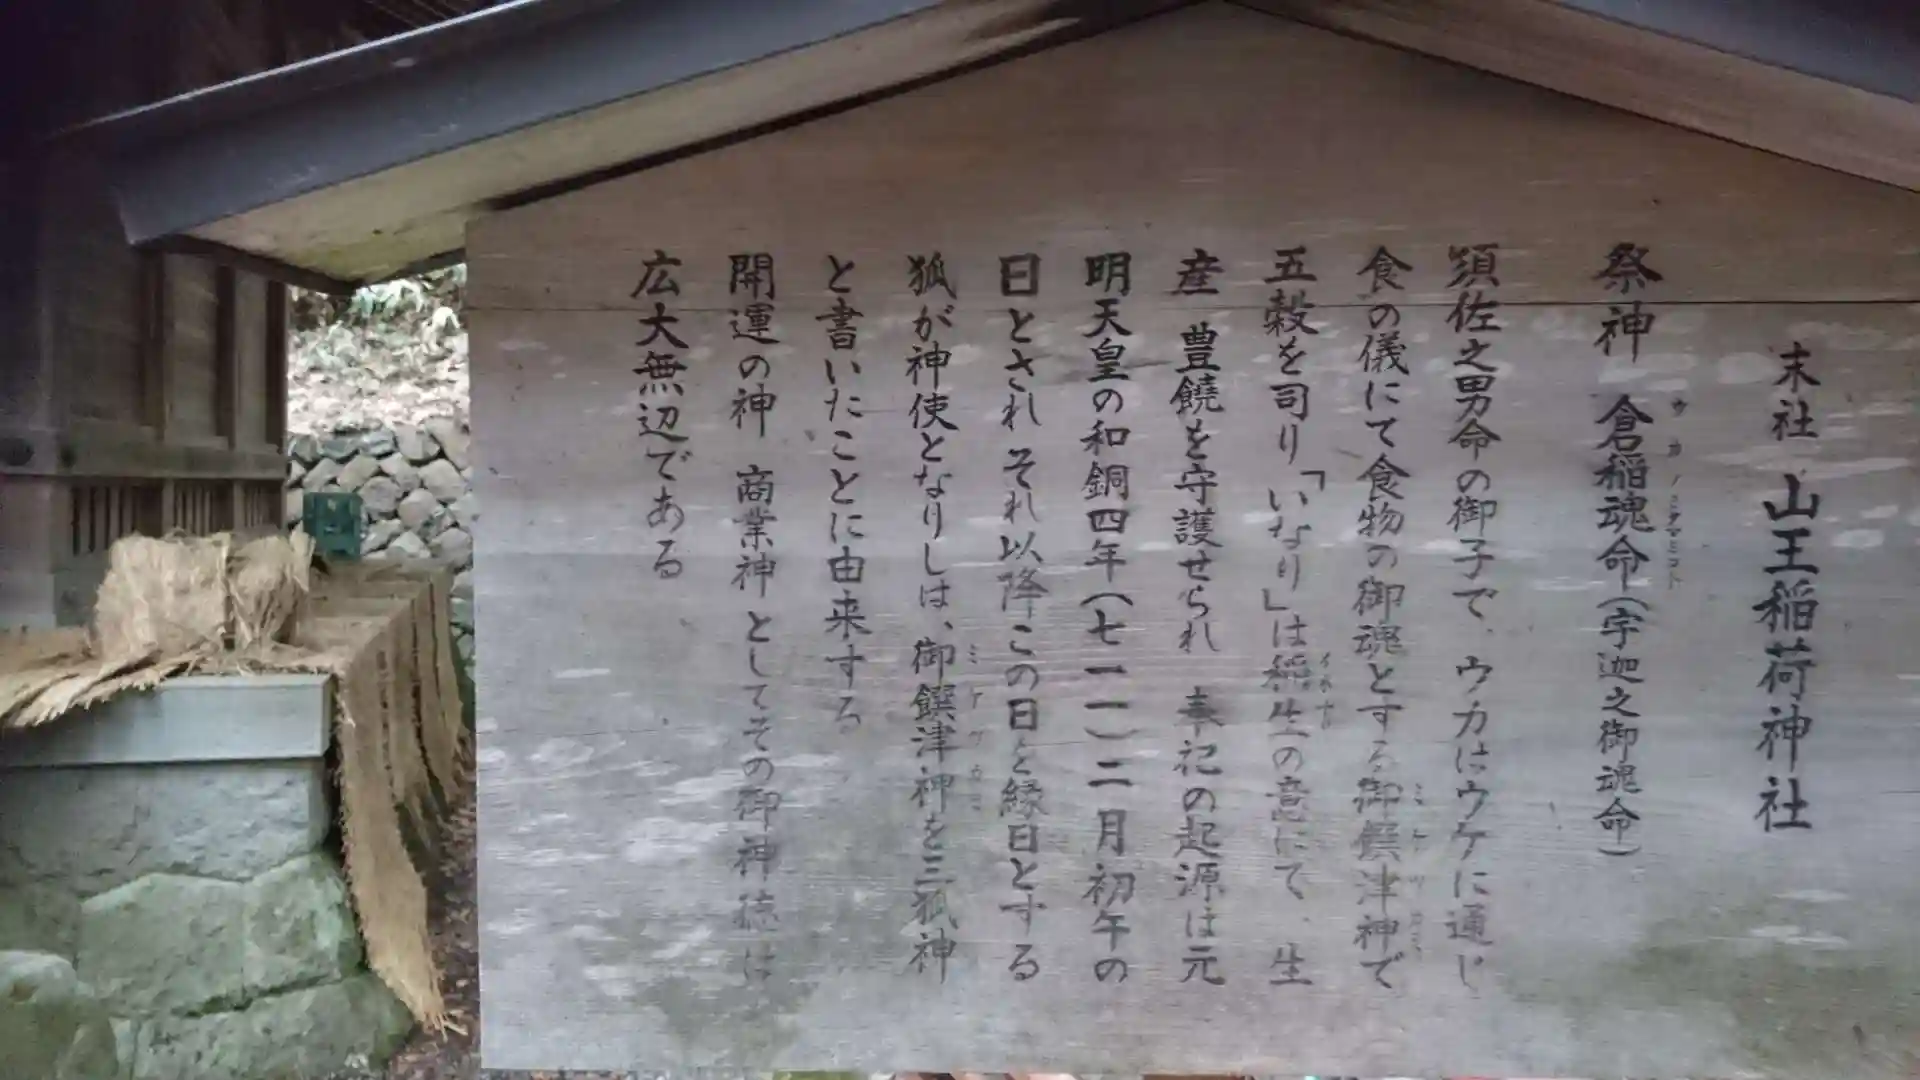 末社 山王稲荷神社
祭神 倉稲魂命(宇迦之御魂命)
ウカノミタマミコト
須佐之男命の御子で、ウカはウケに通じ
食の儀にて食物の御魂とする御饌津神で
ミケツカミ
五穀を司り「いなり」は稲生の意にて、生
イネナリ
産 豊饒を守護せられ 奉祀の起源は元
明天皇の和銅四年(七一一)二月初午の
日とされ それ以降この日と縁日とする
狐が神使となりしは、御饌津神を三狐神
ミケツカミ
と書いたことに由来する
開運の神 商業神 としてその御神徳は
広大無辺である